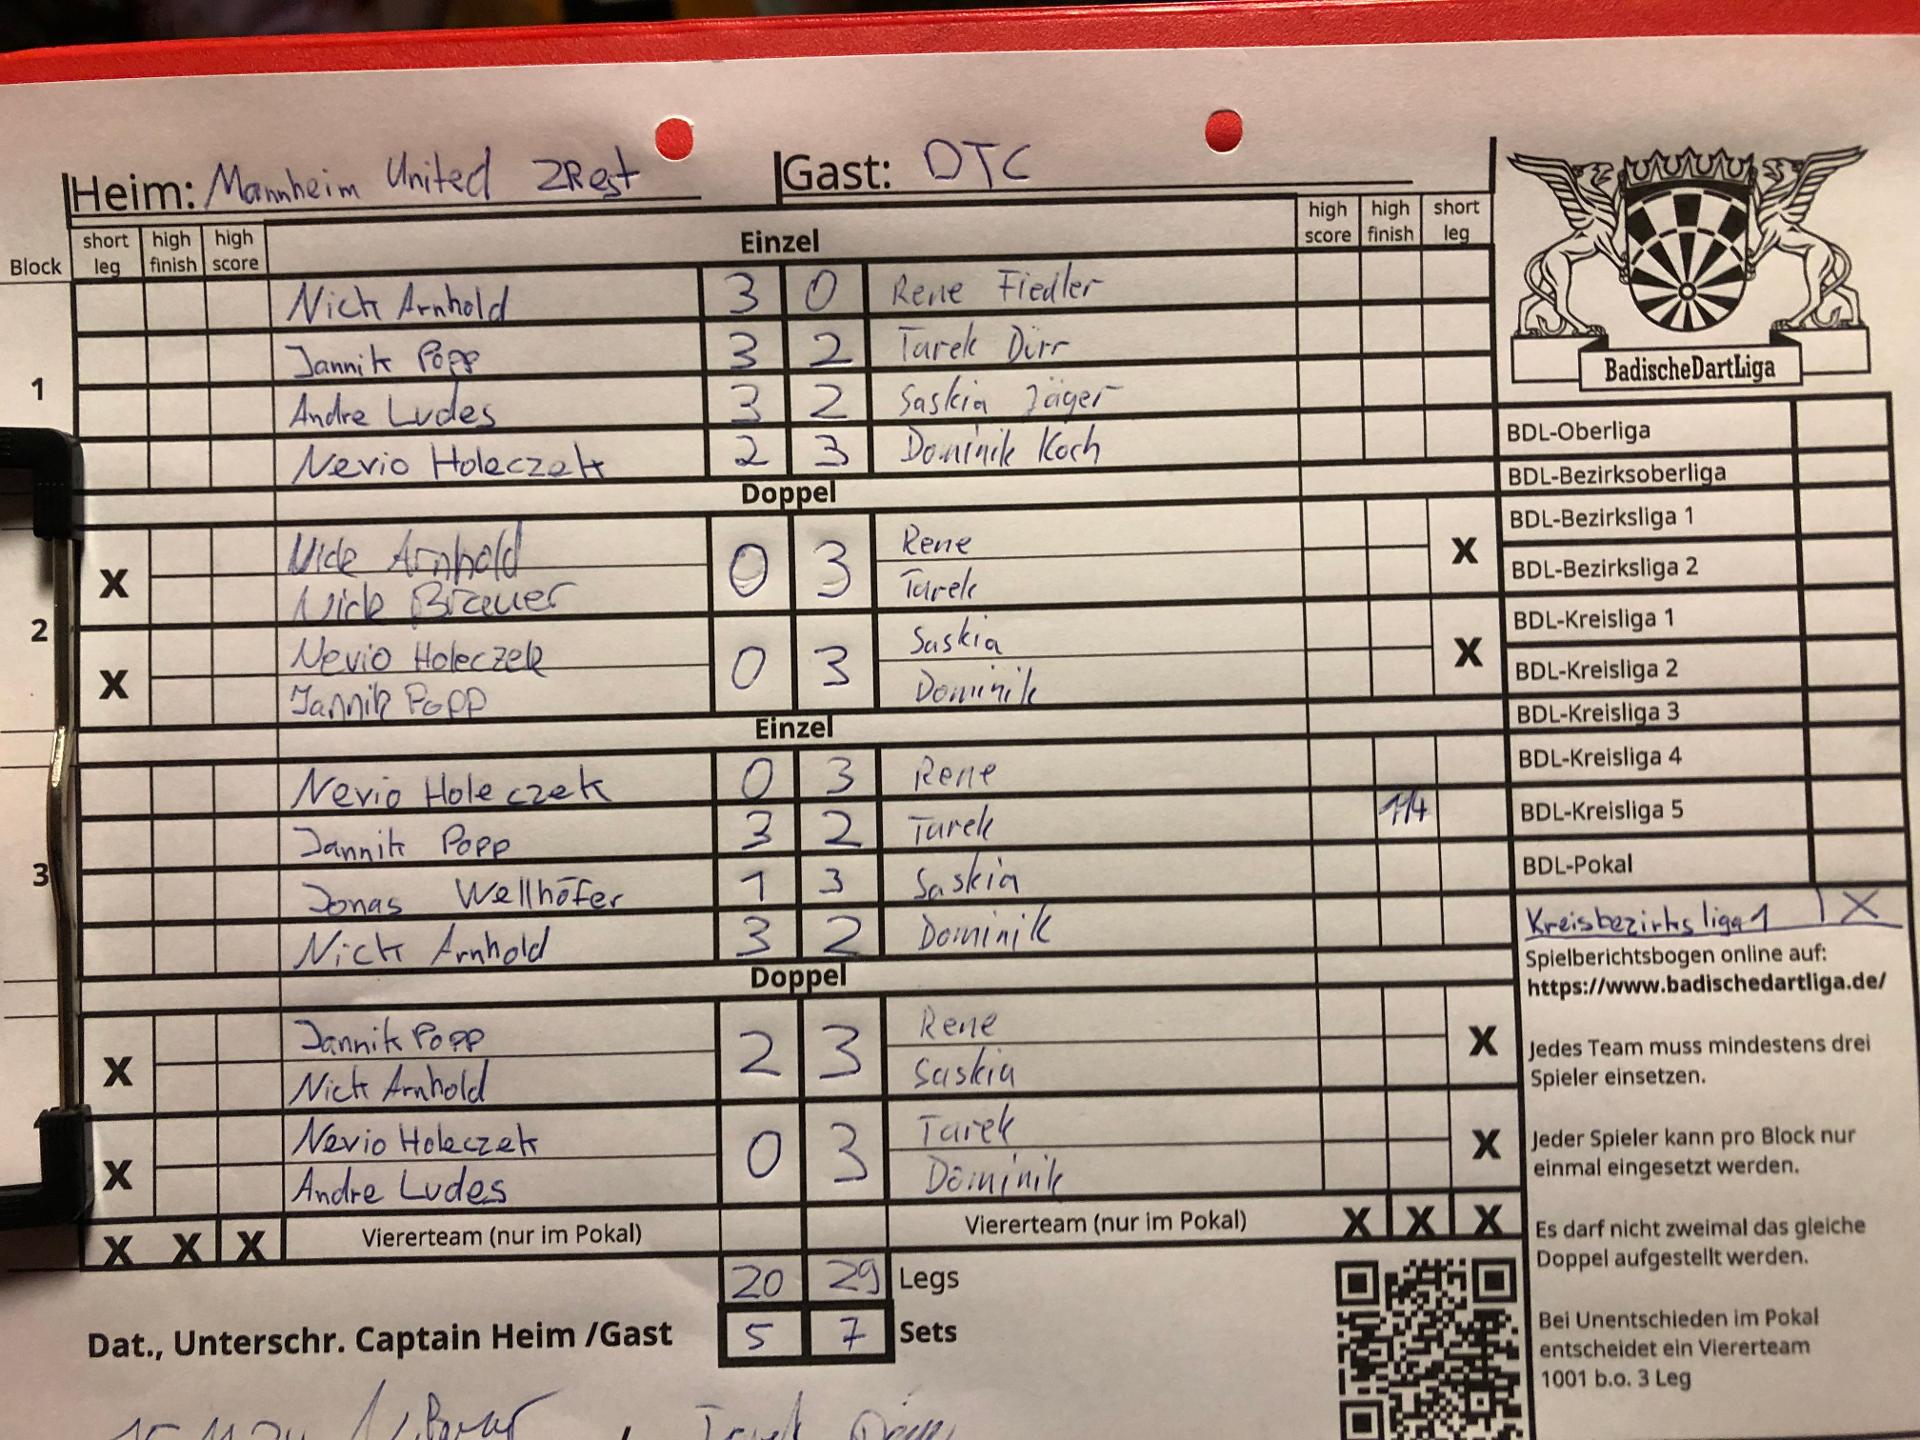 Heim: Mannheim United 2Rest Gast: DTC
Block short leg high finish high score Einzel high score high finish short leg
1
Nick Arnhold 3 0 Rene Fiedler
Jannik Popp 3 2 Tarek Dürr
Andre Ludes 3 2 Saskia Jäger
Nevio Holeczek 2 3 Dominik Koch
Doppel
2
X Nick Arnhold 0 3 Rene X
Nick Brauer Tarek
X Nevio Holeczek 0 3 Saskia X
Jannik Popp Dominik
Einzel
3
Nevio Holeczek 0 3 Rene
Jannik Popp 3 2 Tarek 114
Jonas Wellhöfer 1 3 Saskia
Nick Arnhold 3 2 Dominik
Doppel
X Jannik Popp 2 3 Rene X
Nick Arnhold Saskia
X Nevio Holeczek 0 3 Tarek X
Andre Ludes Dominik
X X X Viererteam (nur im Pokal) Viererteam (nur im Pokal) X X X
20 29 Legs
Dat., Unterschr. Captain Heim /Gast 5 7 Sets
BadischeDartLiga
BDL-Oberliga
BDL-Bezirksoberliga
BDL-Bezirksliga 1
BDL-Bezirksliga 2
BDL-Kreisliga 1
BDL-Kreisliga 2
BDL-Kreisliga 3
BDL-Kreisliga 4
BDL-Kreisliga 5
BDL-Pokal
Kreisbezirksliga 1 X
Spielberichtsbogen online auf:
https://www.badischedartliga.de/
Jedes Team muss mindestens drei
Spieler einsetzen.
Jeder Spieler kann pro Block nur
einmal eingesetzt werden.
Es darf nicht zweimal das gleiche
Doppel aufgestellt werden.
Bei Unentschieden im Pokal
entscheidet ein Viererteam
1001 b.o. 3 Leg